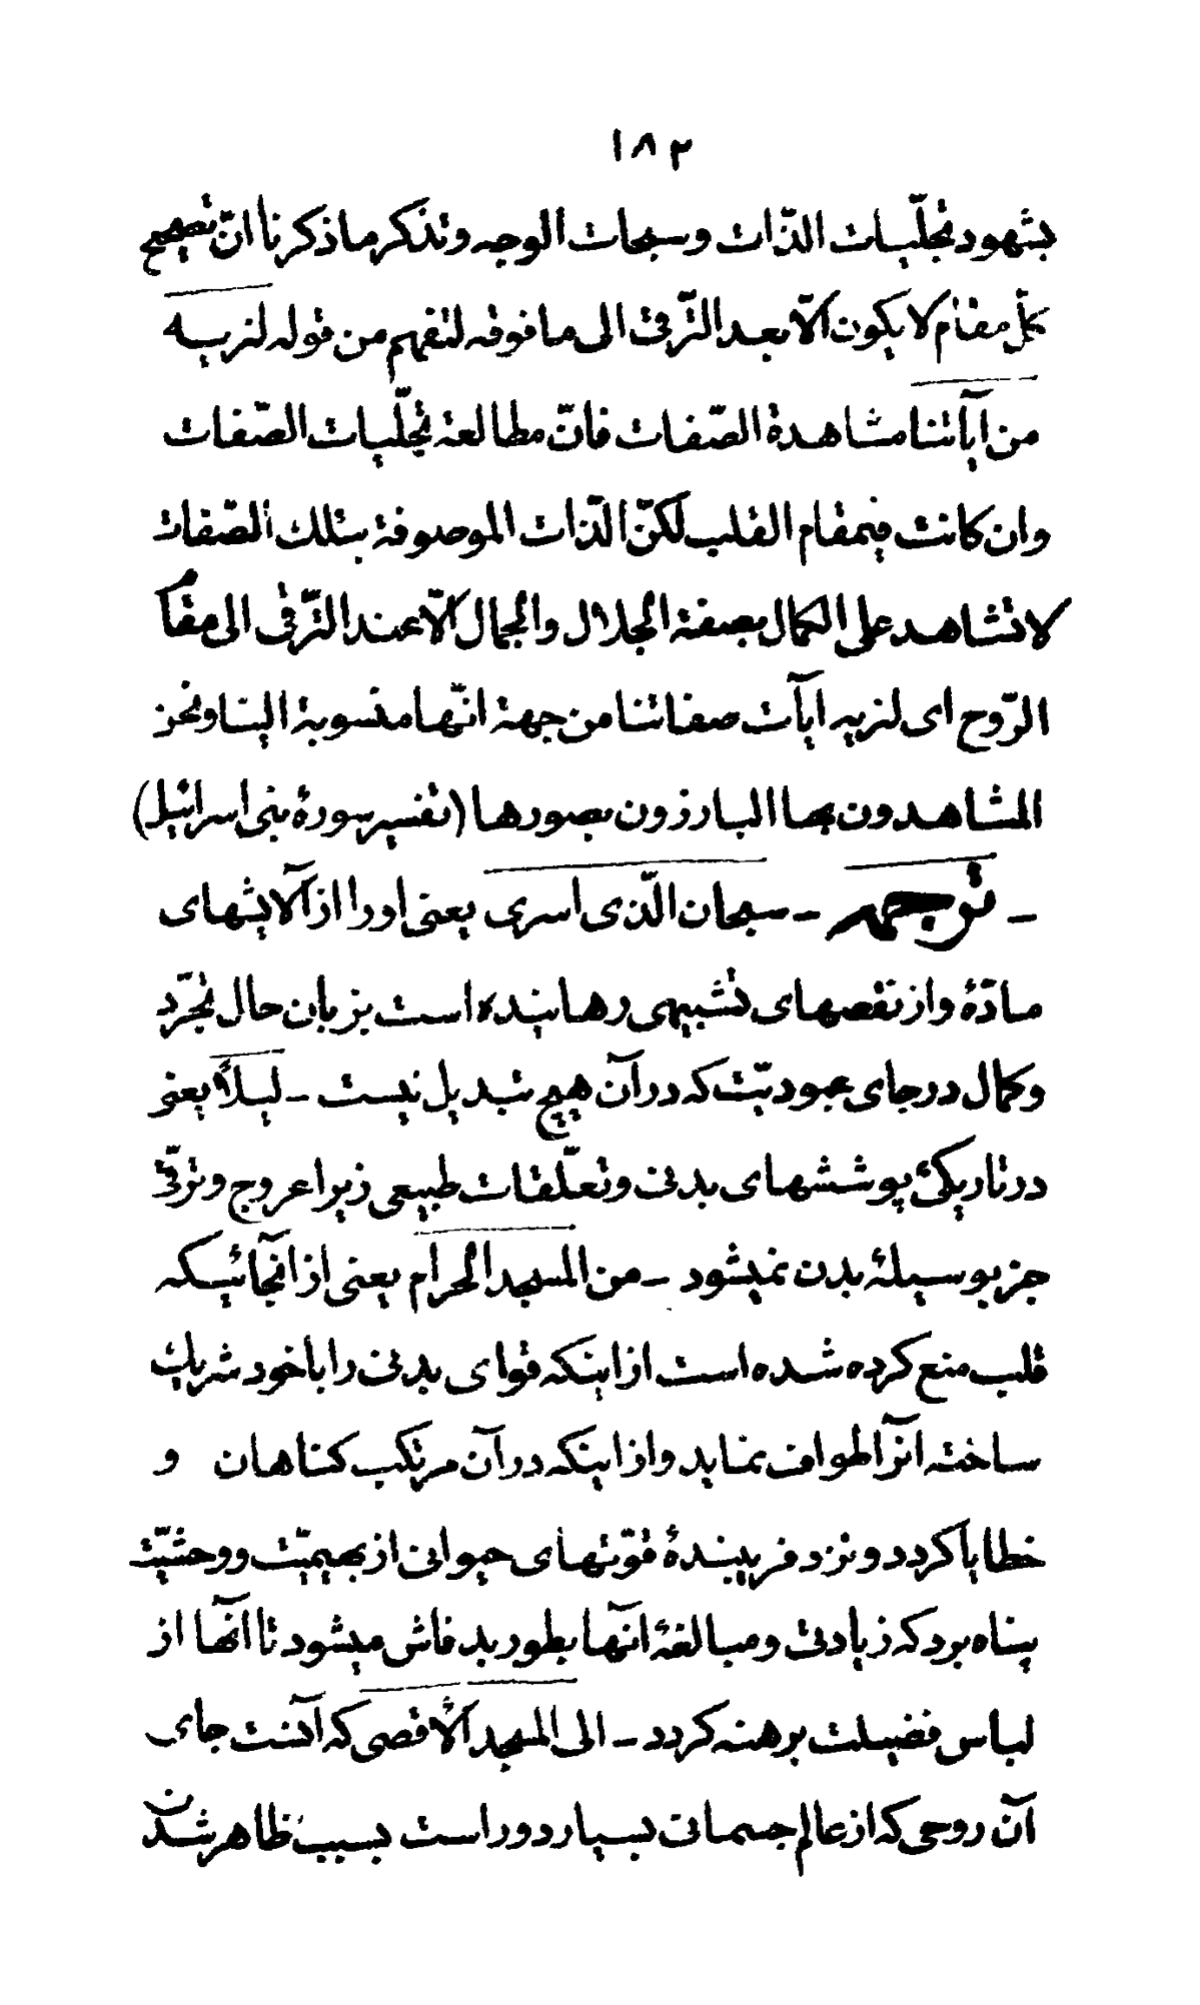 ١٨٢
بشهود تجلّیات الذّات وسبحات الوجه وتذکر ما ذکرنا انّ تصحیح
کلّ مقام لا یکون الّا بعد الترّقی الی ما فوقه لتفهم من قوله لنریه
من آیاتنا مشاهدة الصّفات فانّ مطالعة تجلّیات الصّفات
وان کانت فیمقام القلب لکنّ الّذات الموصوفة بتلک الصّفات
لا تشاهد علی الکمال بصفة الجلال والجمال الّا عند الترّقی الی مقام
الرّوح ای لنریه ایآت صفاتنا من جهة انّها منسوبة الینا ونحن
المشاهدون بها البارزون بصورها (تفسیر سورهٔ بنی اسرائیل)
ـ ترجمه ـ سبحان الّذی اسری یعنی اورا از آلایشهای
مادّهٔ واز نقصهای تشبیهی رهانیده است بزبان حال تجرّد
وکمال در جای عبودیّت که در آن هیچ تبدیل نیست ـ لیلاً یعنی
در تاریکیٔ پوششهای بدنی وتعلّقات طبیعی زیرا عروج وترقّی
جز بوسیلهٔ بدن نمیشود ـ من المسجد الحرام یعنی از آنجائیکه
قلب منع کرده شده است از اینکه قوای بدنی را با خود شریک
ساخته آنرا طواف نماید واز اینکه در آن مرتکب کناهان و
خطایا کردد ونزد فریبندهٔ قوّتهای حیوانی از بهیمیّت ووحشیّت
پناه برد که زیادتی ومبالغهٔ آنها بطور بد فاش میشود تا آنها از
لباس فضیلت برهنه کردد ـ الی المسجد الأقصی که آنست جای
آن روحی که از عالم جسمانی بسیار دور است بسبب ظاهر شدن